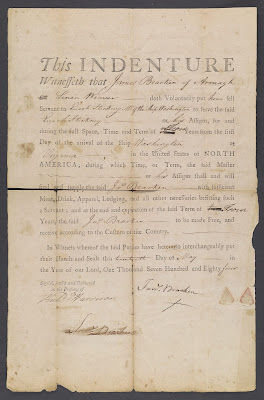 This INDENTURE
Witnesseth that James Bracken of Armagh
Linen Weaver doth Voluntarily put himself
Servant to Master of the Ship Washington to have the said
or his Assigns, for and
during the full Space, Time, and Term of Years from the first
Day of the arrival of the Ship Washington at
in the United States of NORTH
AMERICA, during which Time, or Term, the said Master
or his Assigns shall and will
find and supply the said Jas Bracken with sufficient
Meat, Drink, Apparel, Lodging, and all other necessaries befitting such
a Servant, and at the end and expiration of the said Term of
Years, the said Jas Bracken to be made Free, and
receive according to the Custom of the Country.
In Witness whereof the said Parties have hereunto interchangeably put
their Hands and Seals this Day of May in
the Year of our Lord, One Thousand Seven Hundred and Eighty four
Signed, Sealed and Delivered
in the Presence of
James Bracken